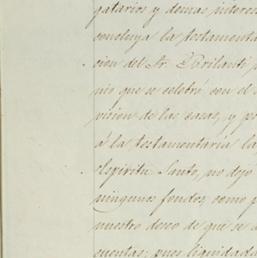 gatarios y demas interes
concluya la testamenta
cion del Sr.
nio que se celebró con el
vision de las casas, y po
á la testamentaria la
Espiritu Santo, no dejo
ningunos fondos, como p
nuestro deseo de que se
cuentas: pues liquidada